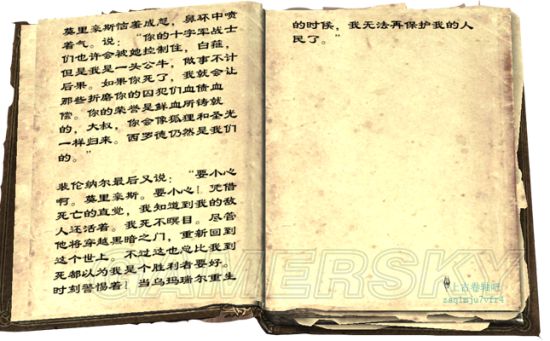 莫里豪斯怙着成怒，鼻环中喷
着气。说：“你的十字军战士
们也许会被她控制住，白菈，
但是我是一头公牛，做事不计
后果。如果你死了，我就会让
那些折磨你的囚犯们血债血
偿。你的荣誉是鲜血所铸就
的，大叔，你会像狐狸和圣光
一样归来。西罗德仍然是我们
的。”
裴伦纳尔最后又说：“要小心
啊。莫里豪斯。要小心！凭借
死亡的直觉，我知道到我的敌
人还活着。我死不瞑目。尽管
他将穿越黑暗之门，重新回到
这个世上。不过这也总比我到
死都以为我是个胜利者要好。
时刻警惕着！当乌玛瑞尔重生
的时候，我无法再保护我的人
民了。”
GAMERSKY
上古卷轴吧
zaq1mju7vfr4